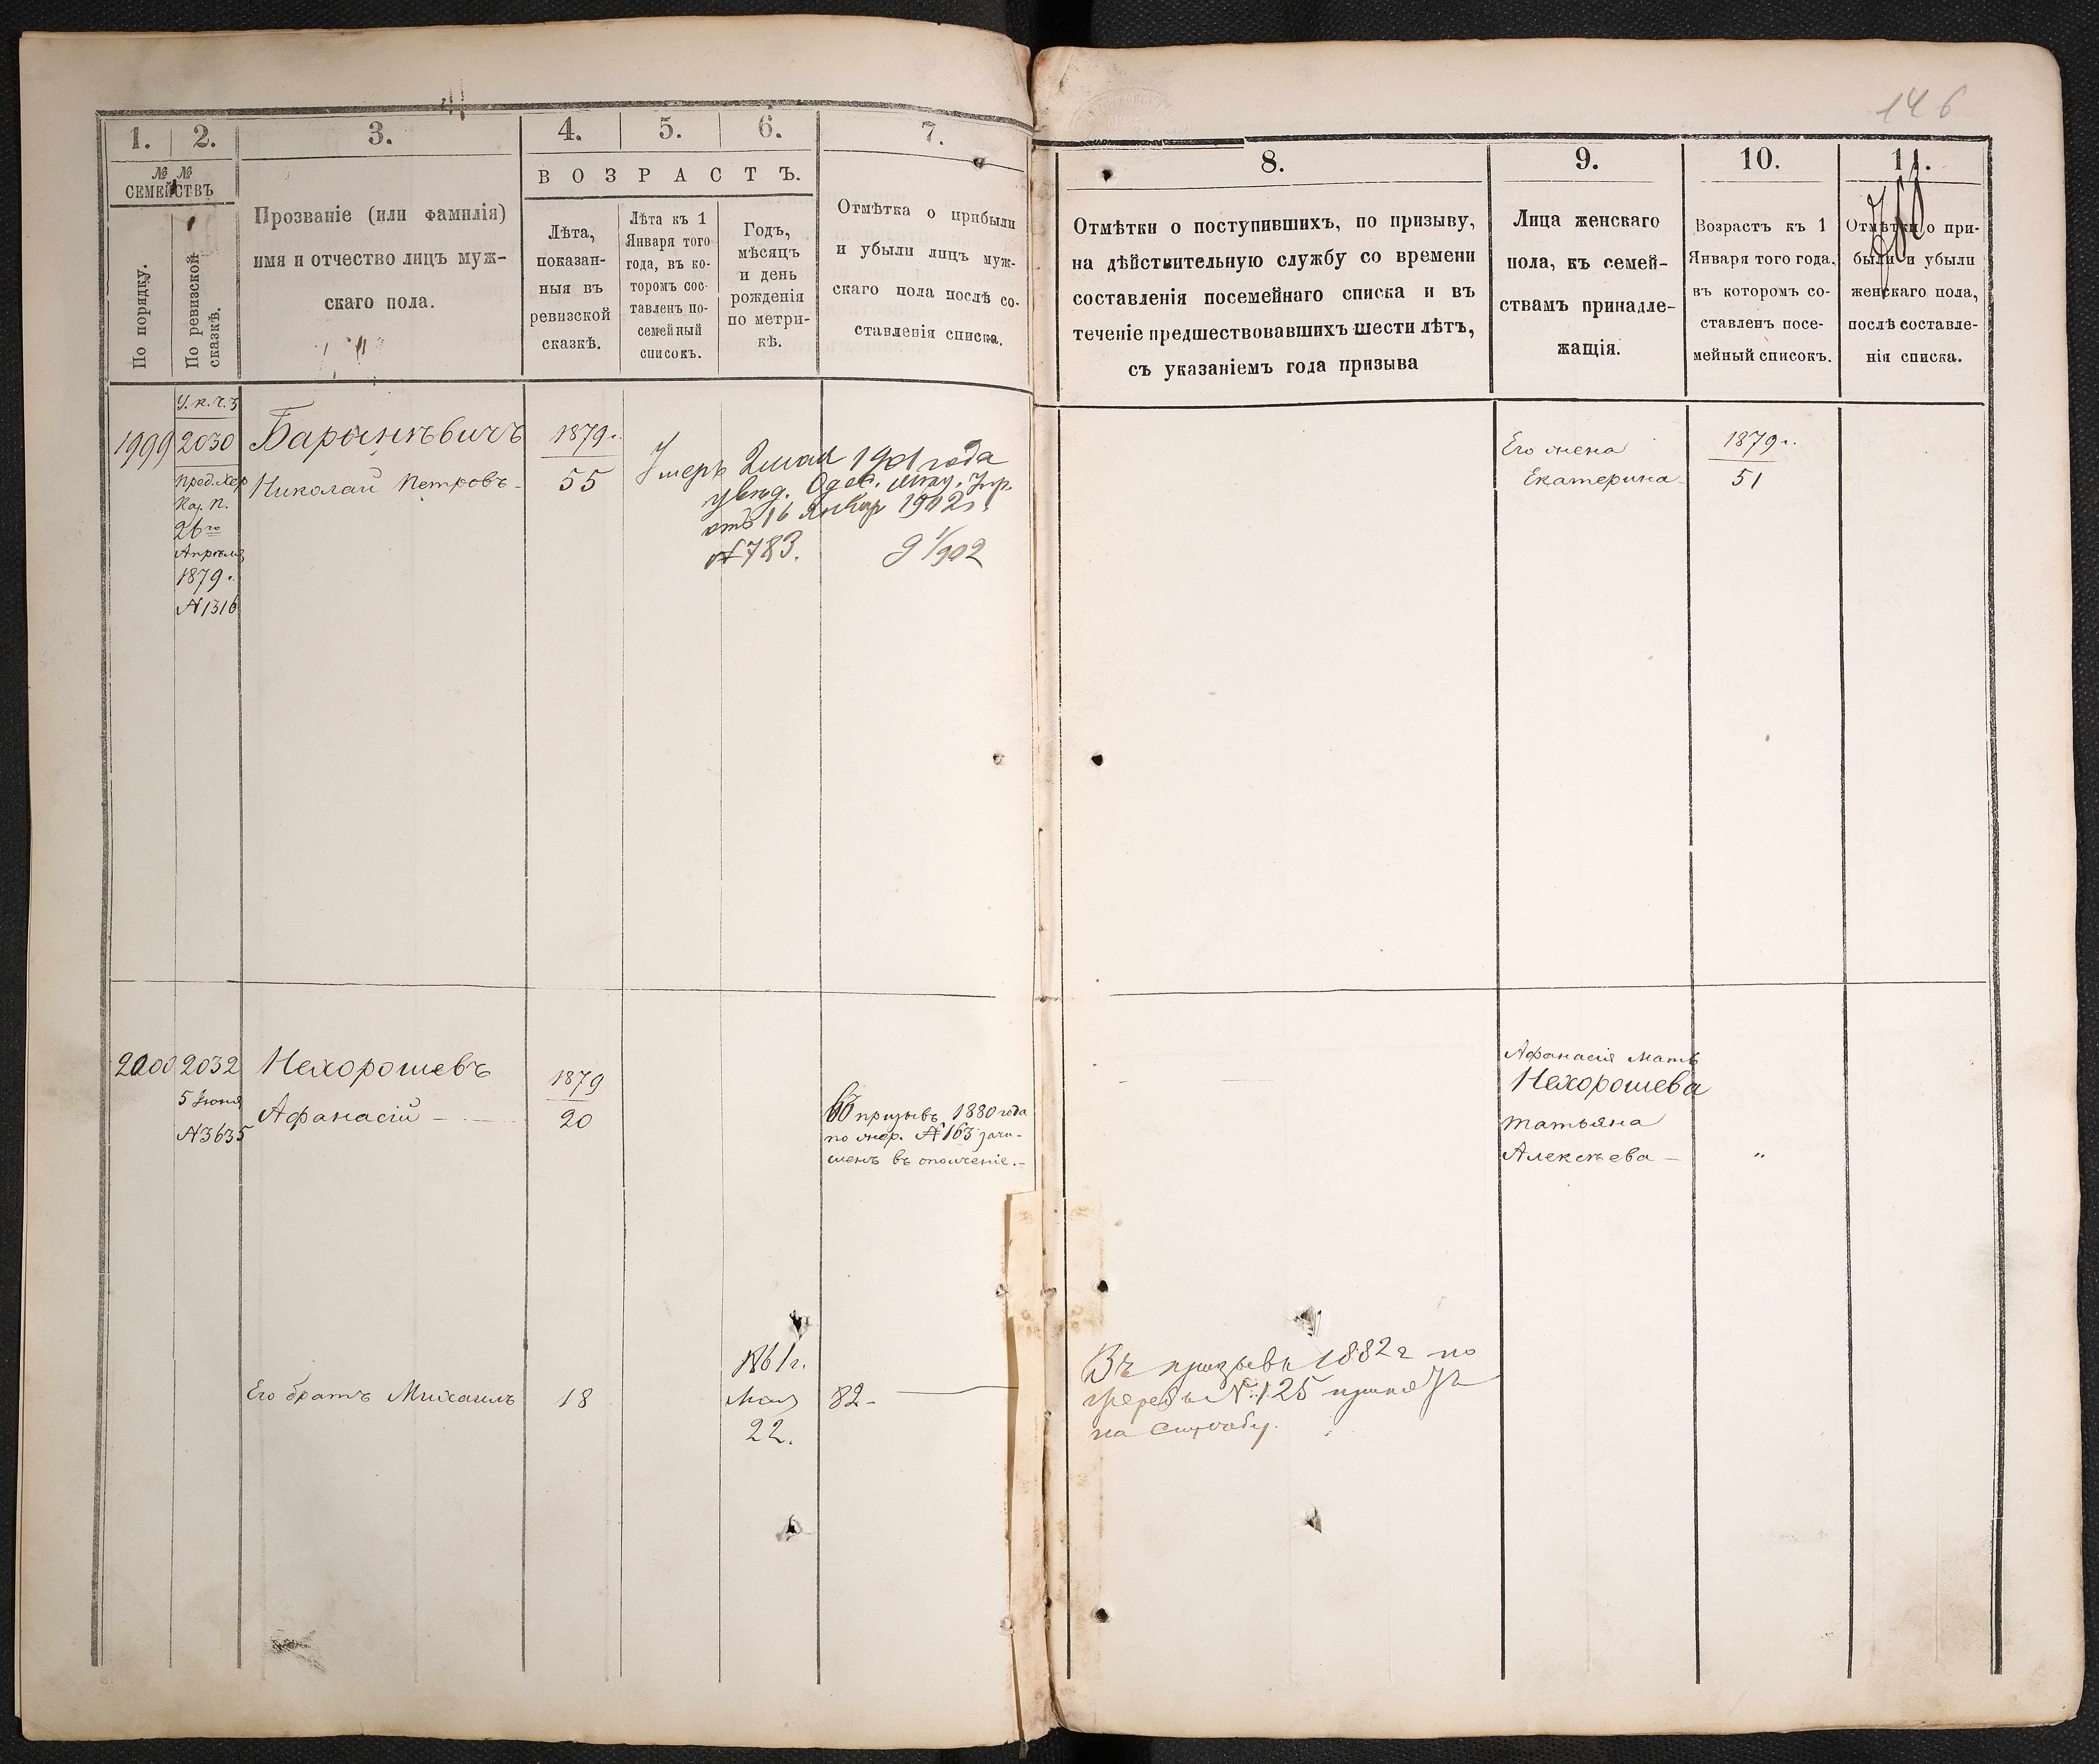 146
1. 2. 3. 4. 5. 6. 7.
№ № СЕМЕЙСТВЪ
По порядку.
По ревизской сказкѣ.
Прозваніе (или фамилія)
имя и отчество лицъ муж-
скаго пола.
ВОЗРАСТЪ.
Лѣта,
показан-
ныя въ
ревизской
сказкѣ.
Лѣта къ 1
Января того
года, въ ко-
торомъ сос-
тавленъ по-
семейный
списокъ.
Годъ,
мѣсяцъ
и день
рожденія
по метри-
кѣ.
Отмѣтка о прибыли
и убыли лицъ муж-
скаго пола послѣ со-
ставленія списка.
У.к.ч.3
1999 2030
Пред. Хер
Каз. П.
26го
Апрѣля
1879 г.
№1316
Баранкевичъ
Николай Петровъ
1879 г.
55
Умеръ 2 мая 1901 года
увѣд. Одес. Упр.
отъ 16 Январ 1902 г.
№783. 9 1/902
2000 2032
5 Іюня
№3635
Нехорошевъ
Афанасій
1879
20
Въ призывъ 1880 года
по жер. №163 зачи-
сленъ въ ополченіе.
Его братъ Михаилъ
18
1861 г.
Мая
22.
82
8. 9. 10. 11.
Отмѣтки о поступившихъ, по призыву,
на дѣйствительную службу со времени
составленія посемейнаго списка и въ
теченіе предшествовавшихъ шести лѣтъ,
съ указаніемъ года призыва
Лица женскаго
пола, къ семей-
ствамъ принадле-
жащія.
Возрастъ къ 1
Января того года,
въ которомъ со-
ставленъ посе-
мейный списокъ.
Отмѣтки о при-
были и убыли
женскаго пола,
послѣ составле-
нія списка.
Его жена
Екатерина
1879 г.
51
Афанасія мать
Нехорошева
Татьяна
Алексѣева
"
Въ призывъ 1882 г по
жеребью №125 принятъ
на службу.